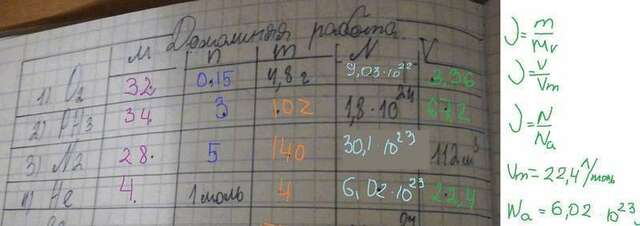 Домашняя работа.
M n m N V
1) O2 32 0,15 4,8 г 9,03·10^22 3,36
2) PH3 34 3 102 1,8·10^24 67,2
3) N2 28 5 140 30,1 10^23 112 м^3
4) He 4 1 моль 4 6,02·10^23 22,4
ν = m/Mr
ν = V/Vm
ν = N/Na
Vm = 22,4 л/моль
Na = 6,02 · 10^23